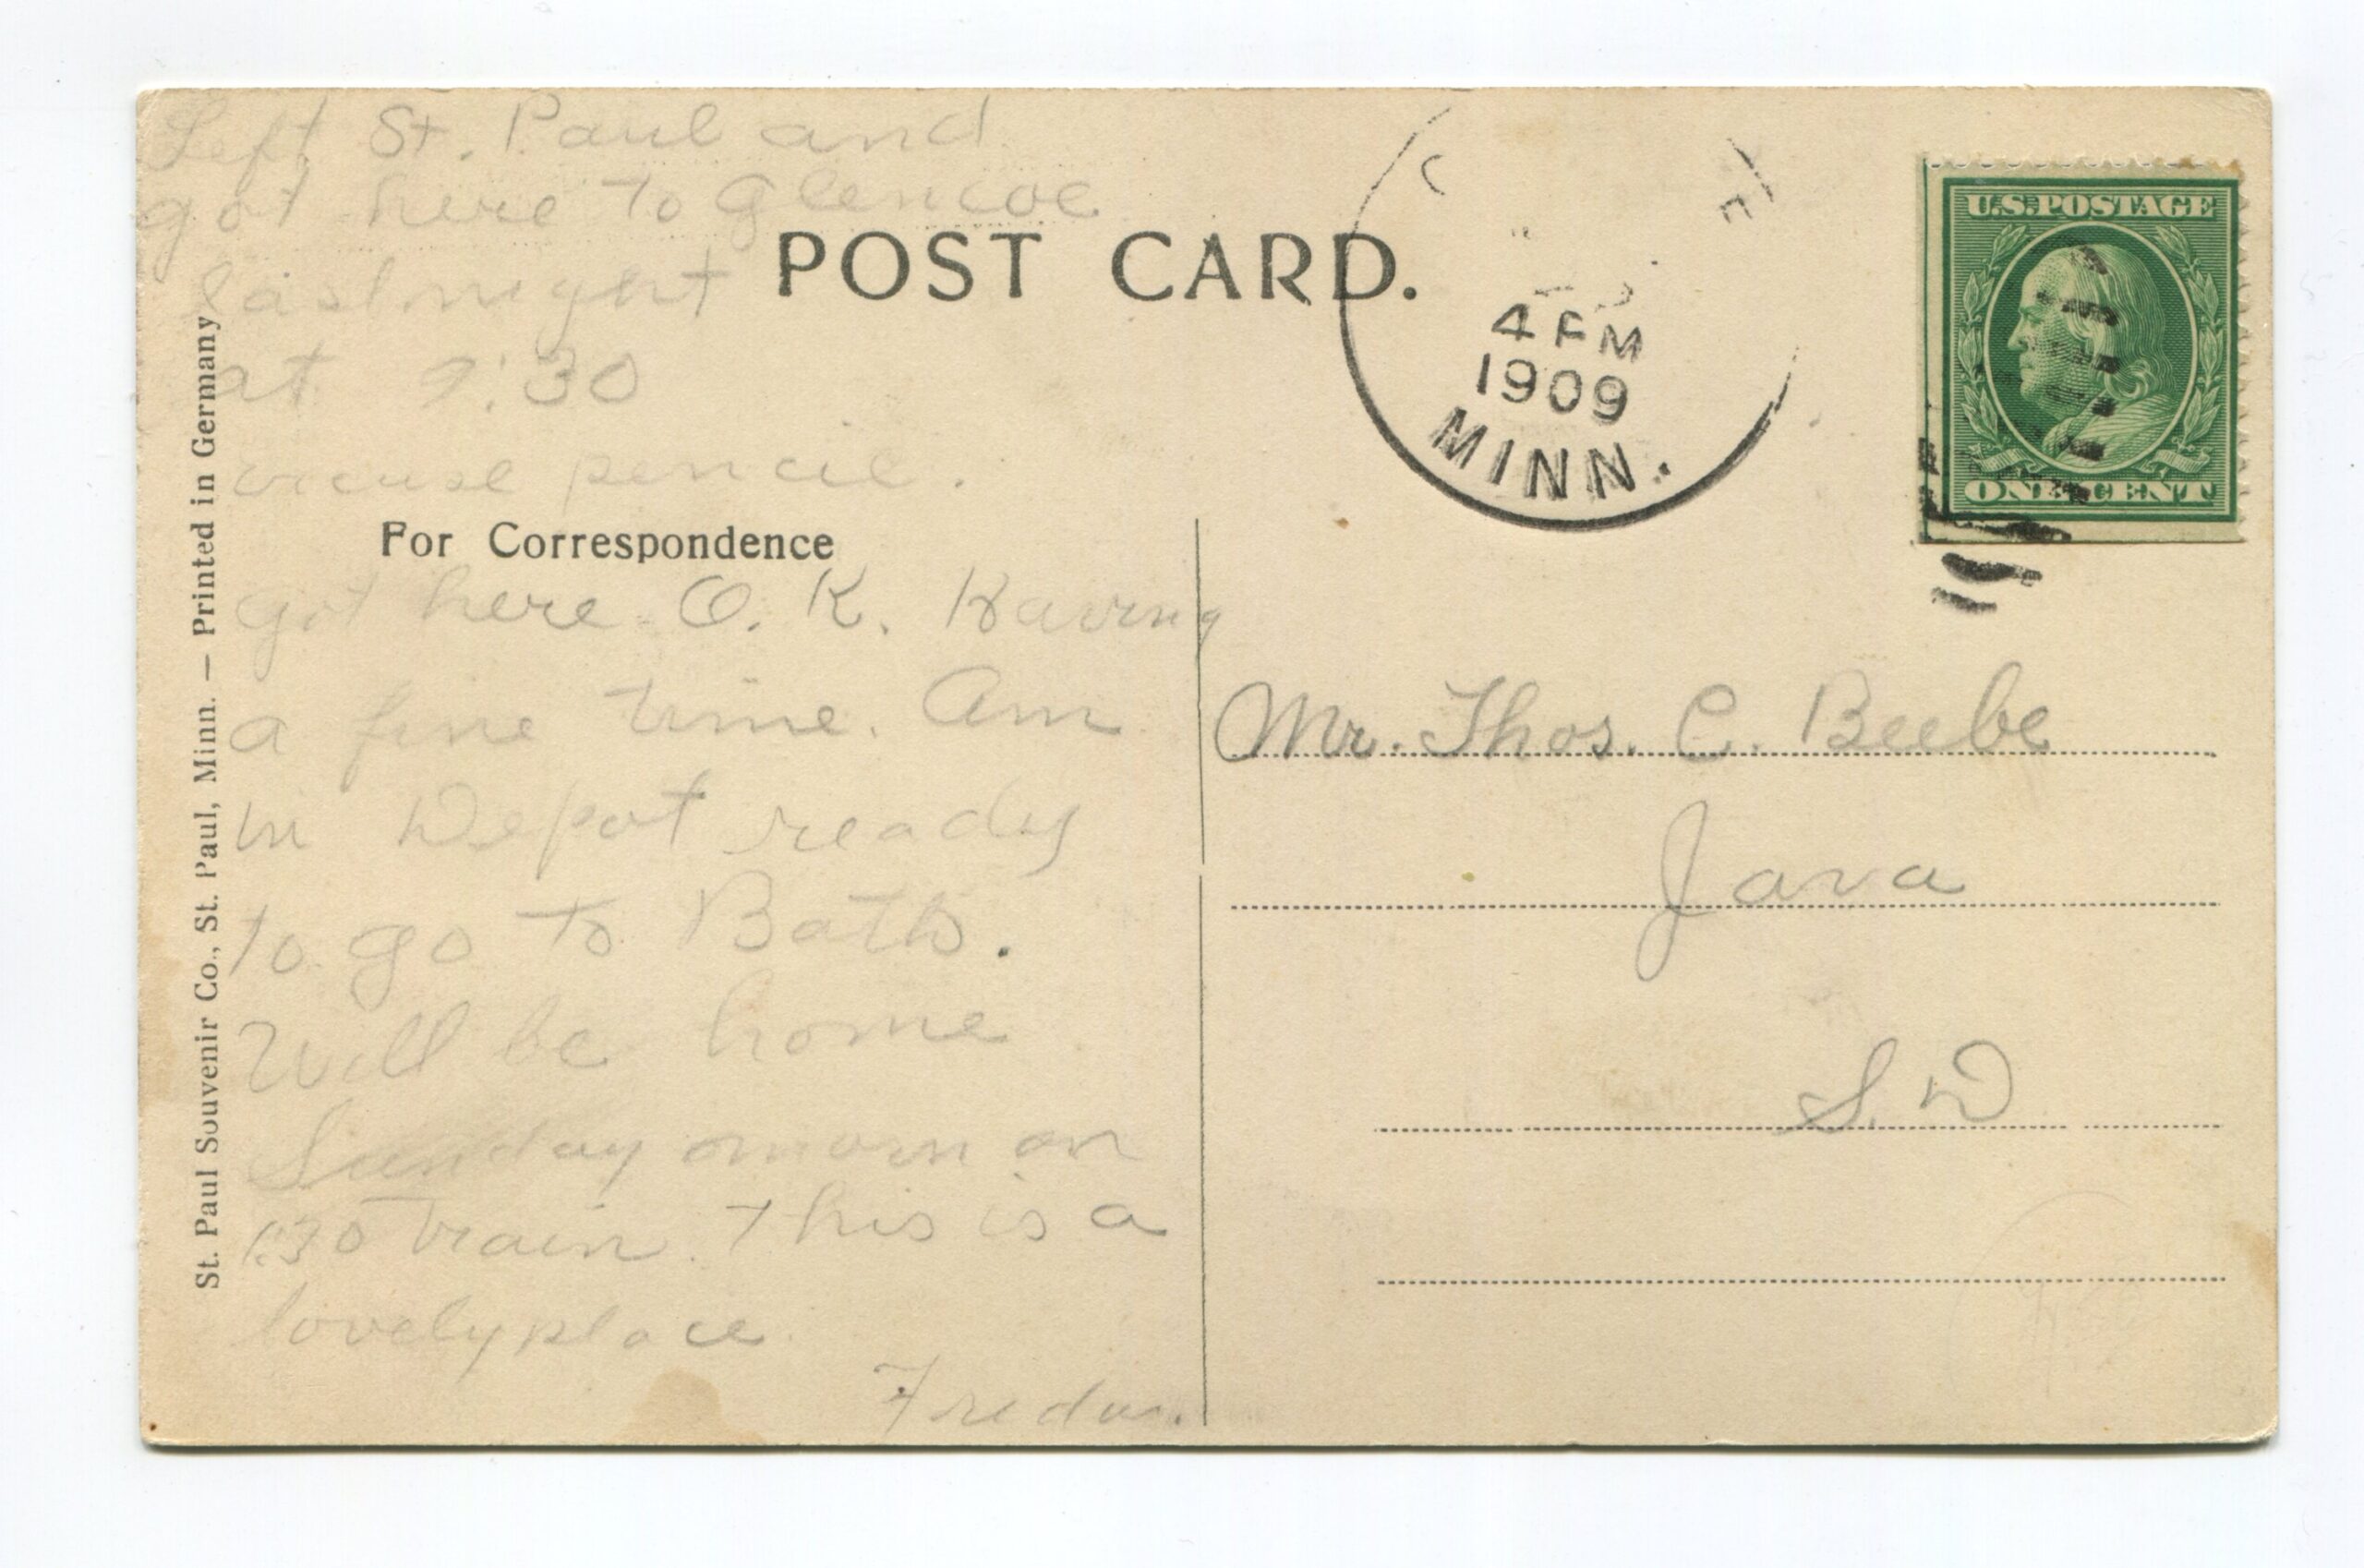 Left St. Paul and
got here to Glencoe
last night
at 7:30
excuse pencil.
POST CARD.
For Correspondence
got here O. K. Having
a fine time. Am
in Depot ready
to go to Bath.
Will be home
Sunday morn on
1:30 train. This is a
lovely place
St. Paul Souvenir Co., St. Paul, Minn. — Printed in Germany
4 PM
1909
MINN.
U.S. POSTAGE
ONE CENT
Mr. Thos. C. Beebe
Java
S. D